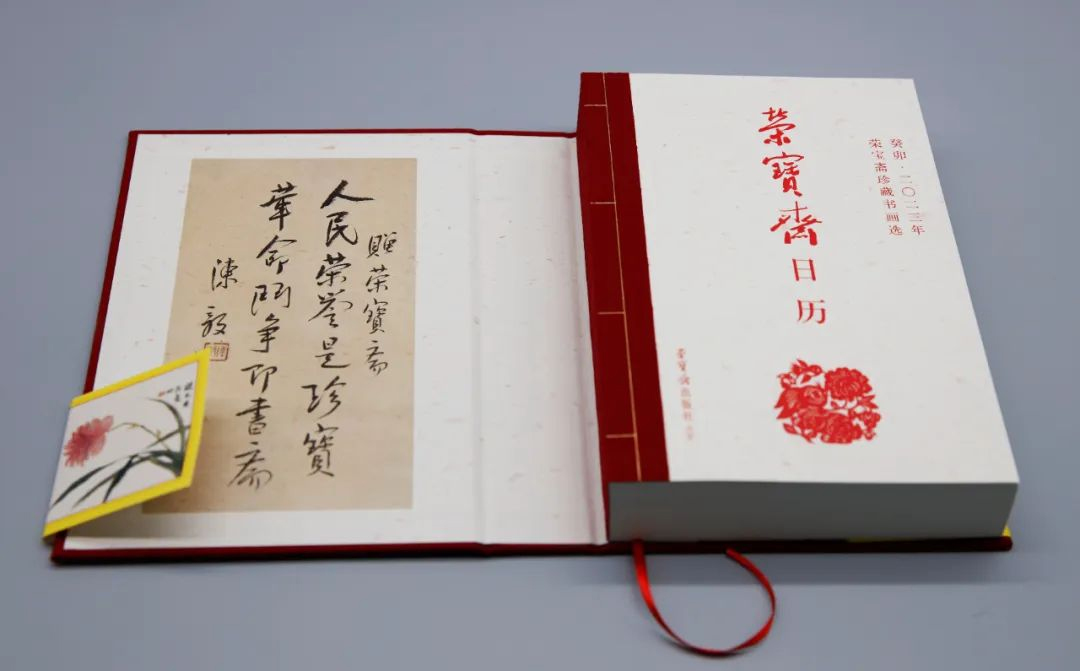 赠荣宝斋
人民荣誉是珍宝
革命鬥争即書斋
陳毅
癸卯·二〇二三年
荣宝斋珍藏书画选
榮寶齋
日历
荣宝斋出版社